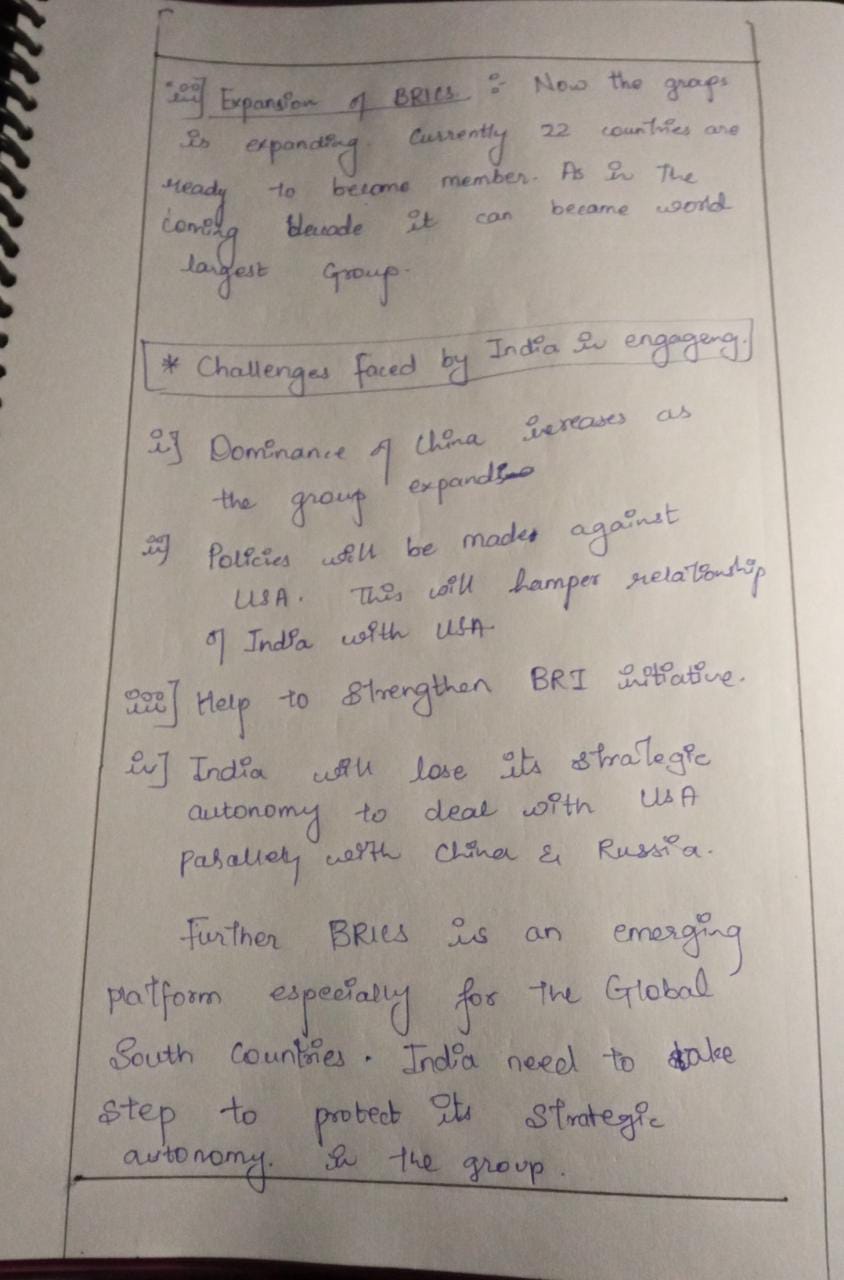 iii] Expansion of BRICS :- Now the graps
is expanding. Currently 22 countries are
ready to become member. As in The
coming decade it can became world
largest Group.
* Challenges faced by India in engageng.
i] Dominance of China increases as
the group expands
ii] Policies will be made against
USA. This will hamper relationship
of India with USA
iii] Help to Strengthen BRI initiative.
iv] India will lose its strategic
autonomy to deal with USA
parallely with China & Russia.
Further BRICS is an emerging
platform especially for the Global
South Countries. India need to take
step to protect its strategic
autonomy. in the group.